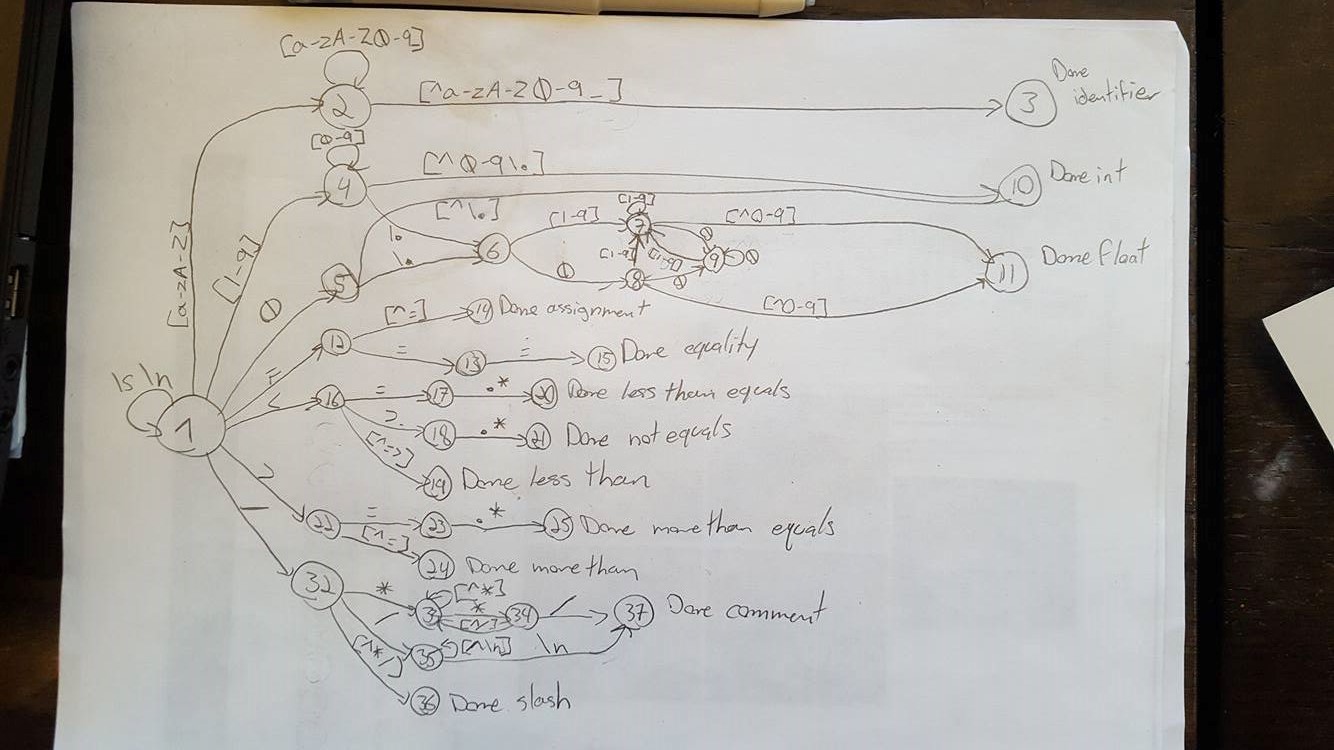 [a-zA-Z0-9]
2
[^a-zA-Z0-9_]
3
Done
identifier
[0-9]
4
[^0-9\.]
10
Done int
[a-zA-Z]
[1-9]
0
5
[^\.]
\.
\.
6
[1-9]
[1-9]
7
[^0-9]
0
[1-9]
[1-9]
9
0
0
8
0
[^0-9]
11
Done float
=
12
[^=]
14 Done assignment
=
13
15 Done equality
\s \n
1
<
16
=
17
.*
20 Done less than equals
>
18
.*
21 Done not equals
[^=>]
19 Done less than
>
22
=
23
.*
25 Done more than equals
[^=]
24 Done more than
/
32
*
[^*]
*
34
/
37 Done comment
/
35
[^\n]
\n
[^*/]
36 Done slash